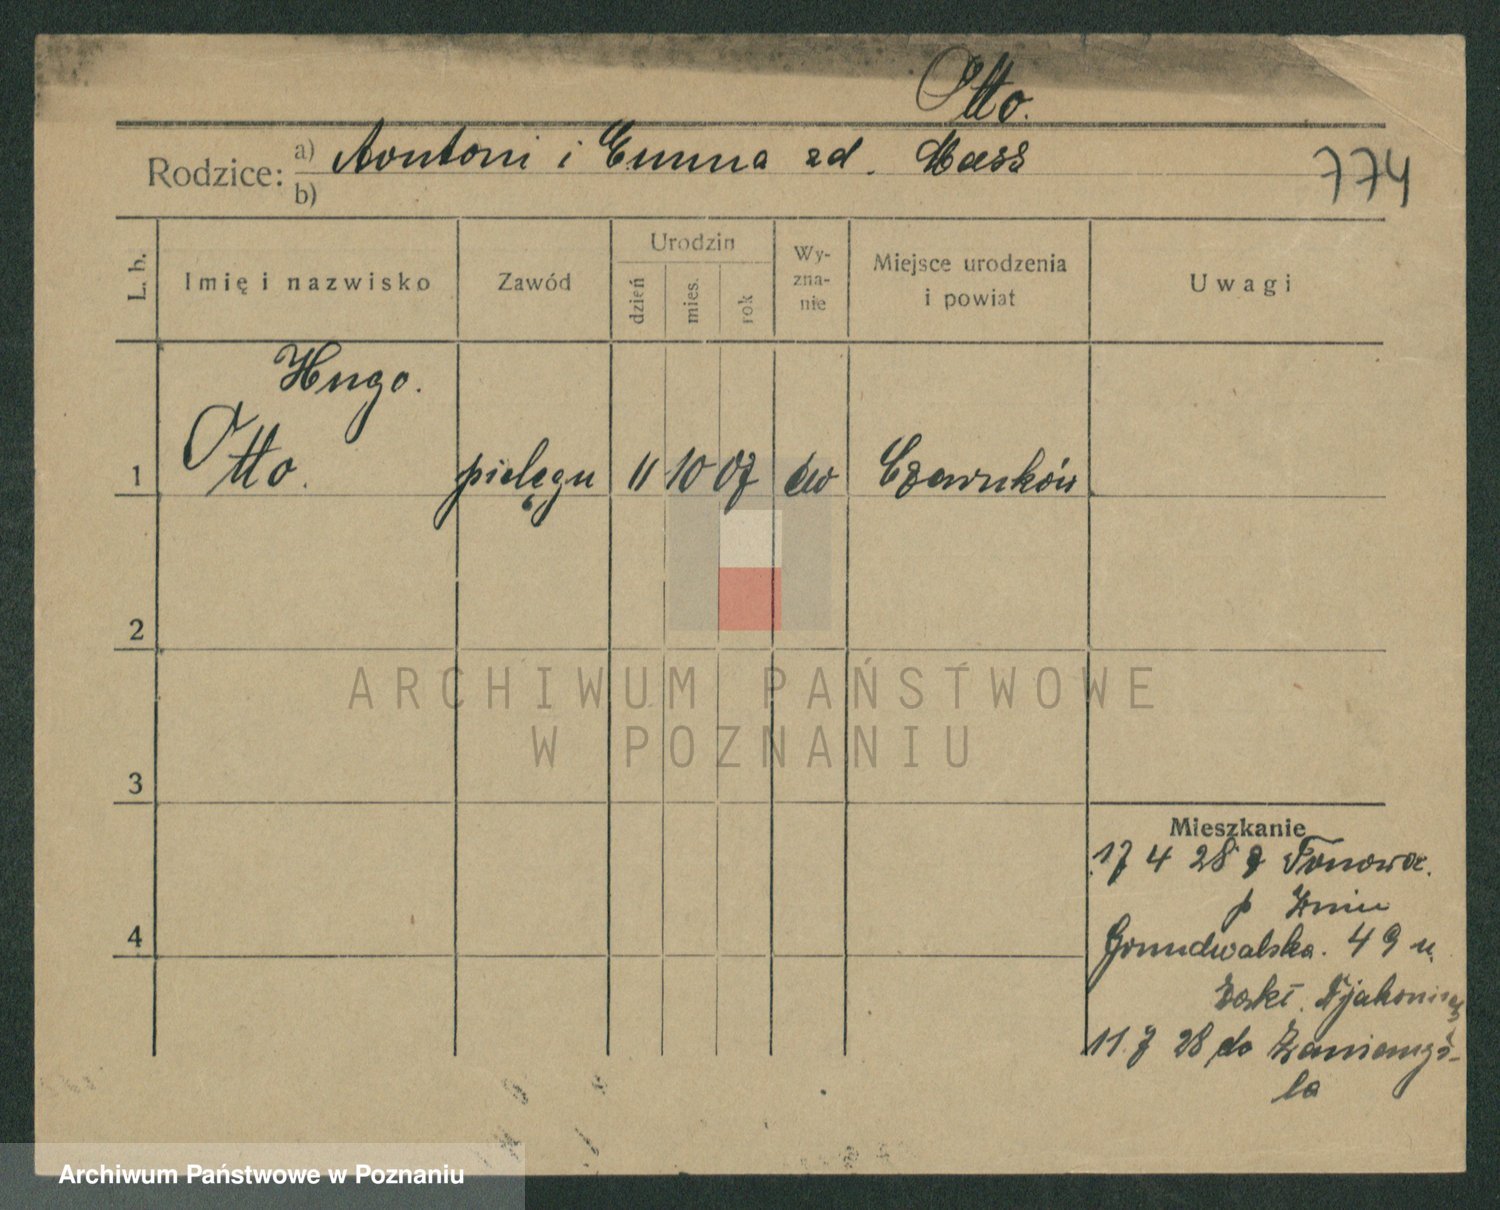 Otto.
Rodzice: a) Antoni i Emma zd. Hass
b)
774
L. b.
Imię i nazwisko
Zawód
Urodzin
dzień
mies.
rok
Wy-
zna-
nie
Miejsce urodzenia
i powiat
Uwagi
Hugo.
1 Otto. pielęgn 11 10 07 ew Czarnków
2
ARCHIWUM PAŃSTWOWE
W POZNANIU
3
Mieszkanie
17 4 28 z
p Żnin
4
Grunwaldska. 49 u.
Zakł.
11. 7 28 do Zaniemyś-
la
Archiwum Państwowe w Poznaniu